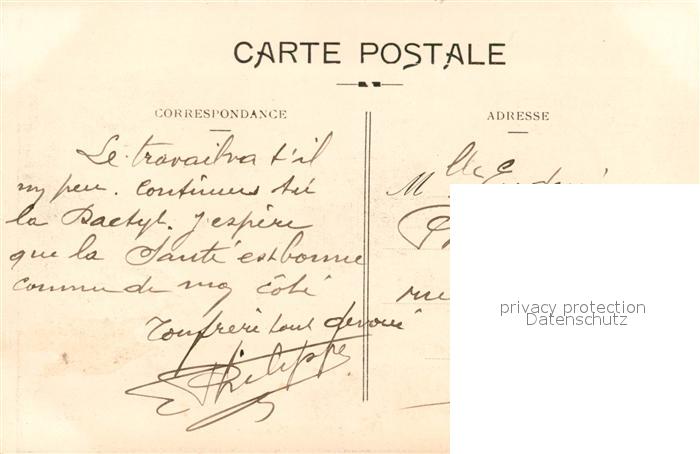 CARTE POSTALE
CORRESPONDANCE
ADRESSE
Le travail va t'il
un peu. Continues tu
la Dactyl. J'espère
que la Santé est bonne
comme de mon côté
Ton frère tout dévoué
Philippe
Mlle
rue
privacy protection
Datenschutz